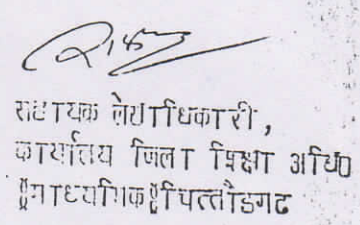 सहायक लेखाधिकारी,
कार्यालय जिला शिक्षा अधि0
§माध्यमिक§चित्तौडगढ